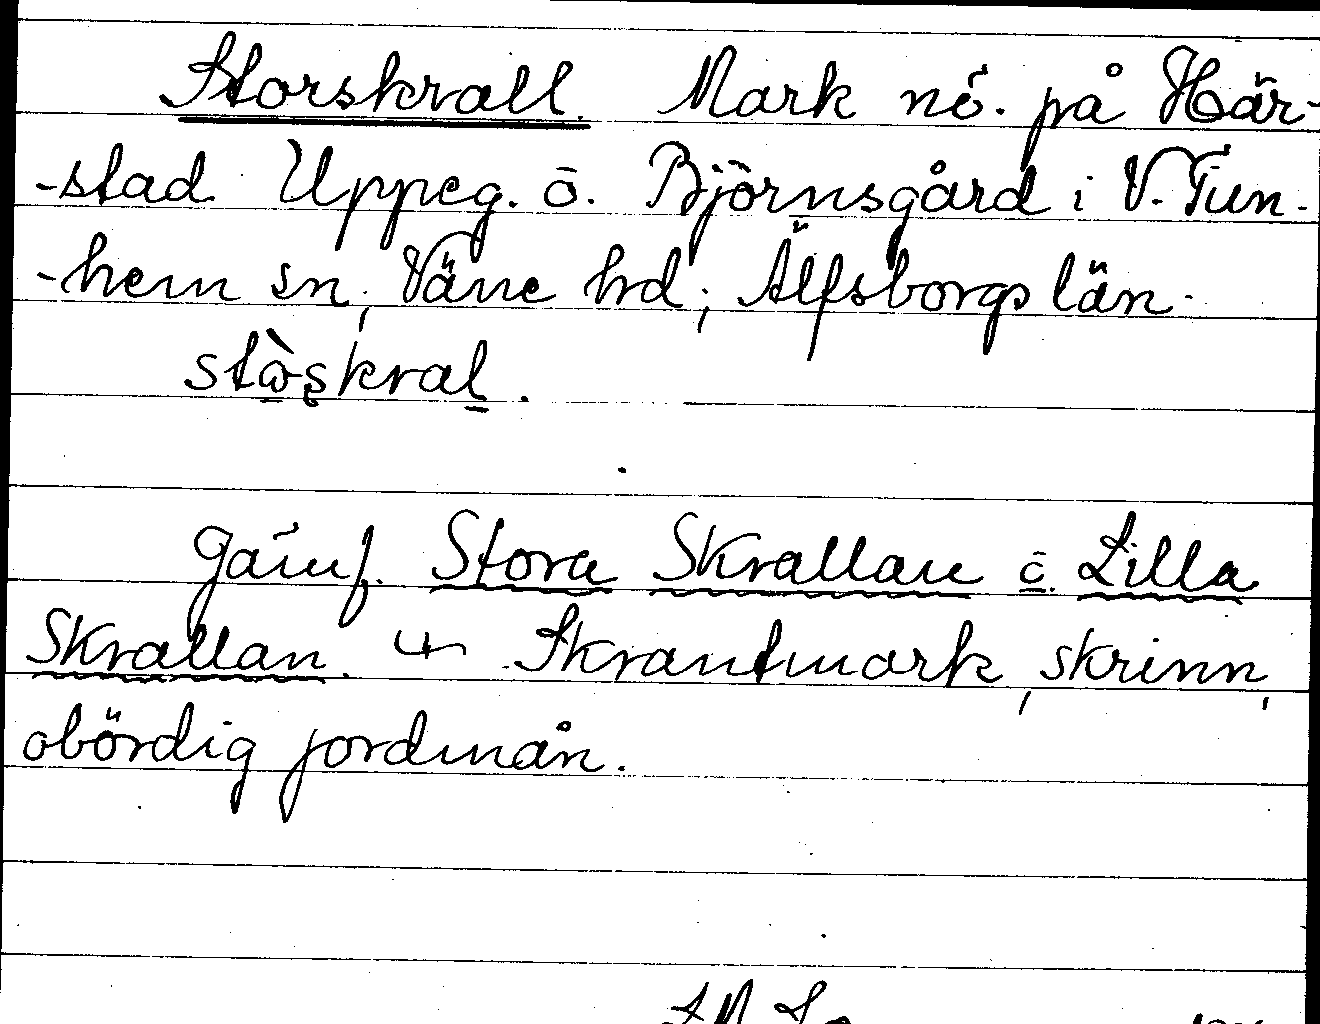 Storskrall. Mark nö. på Här-
-stad Uppeg. o. Björnsgård i V. Tun-
-hem sn, Väne hd, Älfsborgs län.
stὼskral.
Jämf. Stora Skrallan o. Lilla
Skrallan. Skrantmark, skrinn,
obördig jordmån.